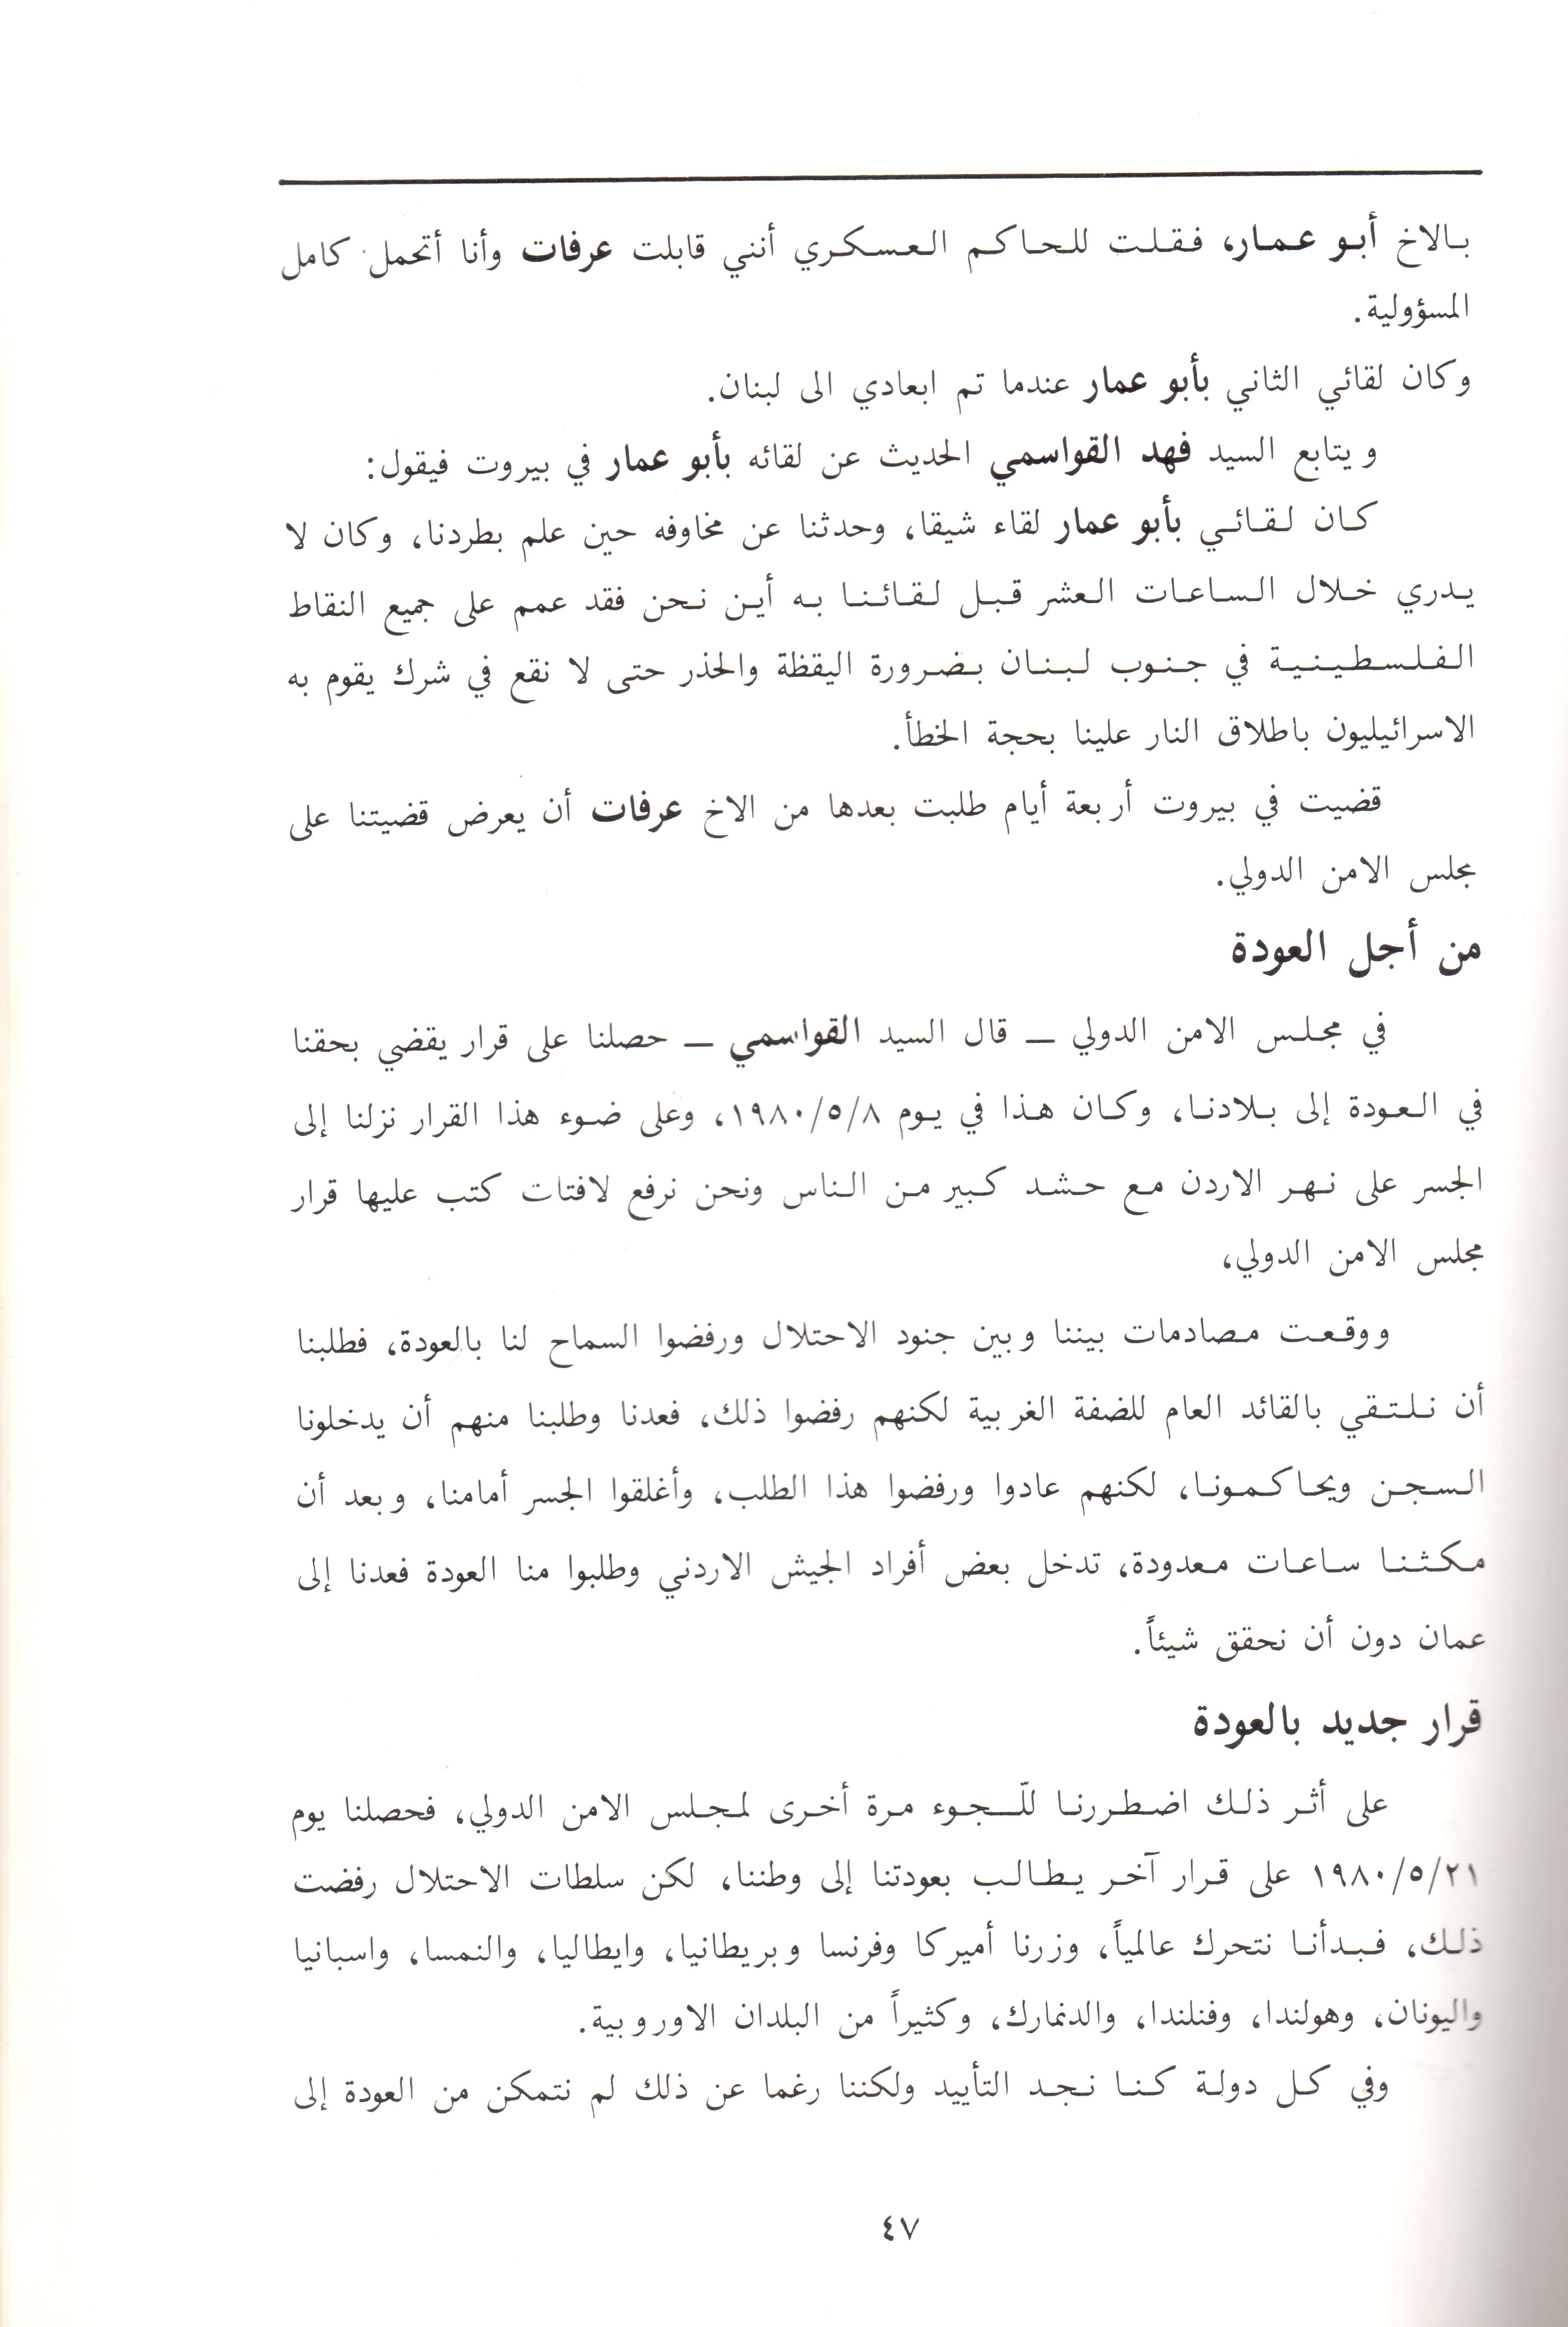 بالاخ أبو عمار، فقلت للحاكم العسكري أنني قابلت عرفات وأنا أتحمل كامل
المسؤولية.
وكان لقائي الثاني بأبو عمار عندما تم ابعادي الى لبنان.
ويتابع السيد فهد القواسمي الحديث عن لقائه بأبو عمار في بيروت فيقول:
كان لقائي بأبو عمار لقاء شيقا، وحدثنا عن مخاوفه حين علم بطردنا، وكان لا
يدري خلال الساعات العشر قبل لقائنا به أين نحن فقد عمم على جميع النقاط
الفلسطينية في جنوب لبنان بضرورة اليقظة والحذر حتى لا نقع في شرك يقوم به
الاسرائيليون باطلاق النار علينا بحجة الخطأ.
قضيت في بيروت أربعة أيام طلبت بعدها من الاخ عرفات أن يعرض قضيتنا على
مجلس الامن الدولي.
من أجل العودة
في مجلس الامن الدولي — قال السيد القواسمي — حصلنا على قرار يقضي بحقنا
في العودة إلى بلادنا، وكان هذا في يوم ١٩٨٠/٥/٨، وعلى ضوء هذا القرار نزلنا إلى
الجسر على نهر الاردن مع حشد كبير من الناس ونحن نرفع لافتات كتب عليها قرار
مجلس الامن الدولي،
ووقعت مصادمات بيننا وبين جنود الاحتلال ورفضوا السماح لنا بالعودة، فطلبنا
أن نلتقي بالقائد العام للضفة الغربية لكنهم رفضوا ذلك، فعدنا وطلبنا منهم أن يدخلونا
السجن ويحاكمونا، لكنهم عادوا ورفضوا هذا الطلب، وأغلقوا الجسر أمامنا، وبعد أن
مكثنا ساعات معدودة، تدخل بعض أفراد الجيش الاردني وطلبوا منا العودة فعدنا إلى
عمان دون أن نحقق شيئاً.
قرار جديد بالعودة
على أثر ذلك اضطررنا للّجوء مرة أخرى لمجلس الامن الدولي، فحصلنا يوم
١٩٨٠/٥/٢١ على قرار آخر يطالب بعودتنا إلى وطننا، لكن سلطات الاحتلال رفضت
ذلك، فبدأنا نتحرك عالمياً، وزرنا أميركا وفرنسا وبريطانيا، وايطاليا، والنمسا، واسبانيا
واليونان، وهولندا، وفنلندا، والدنمارك، وكثيراً من البلدان الاوروبية.
وفي كل دولة كنا نجد التأييد ولكننا رغما عن ذلك لم نتمكن من العودة إلى
٤٧